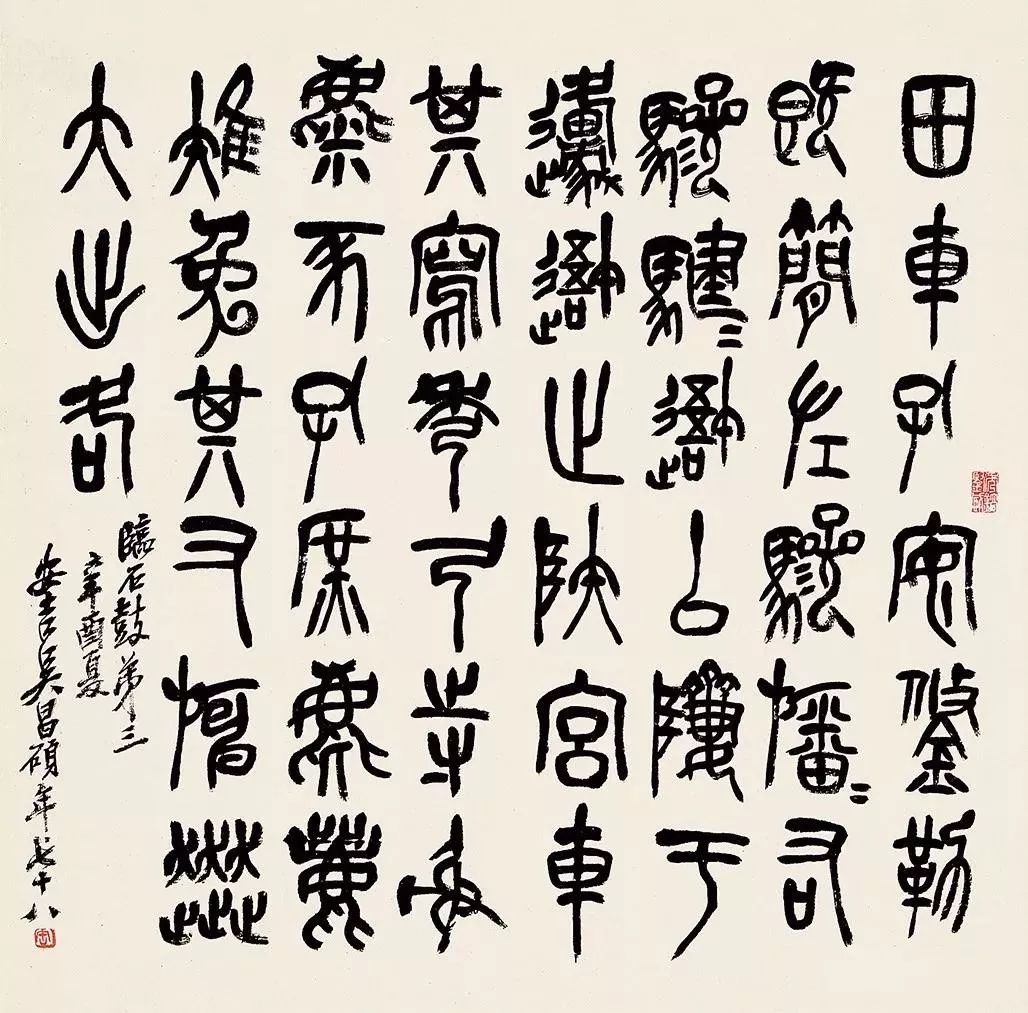 田車孔安鋚勒
既簡左驂旛〻右
驂騝〻吾以隮于
邍吾止陝宮車
其寫秀弓寺射
麋豕孔庶麀鹿
雉兔其又旃奔
大出各
臨石鼓第三
辛酉夏
安吉吳昌碩年七十八